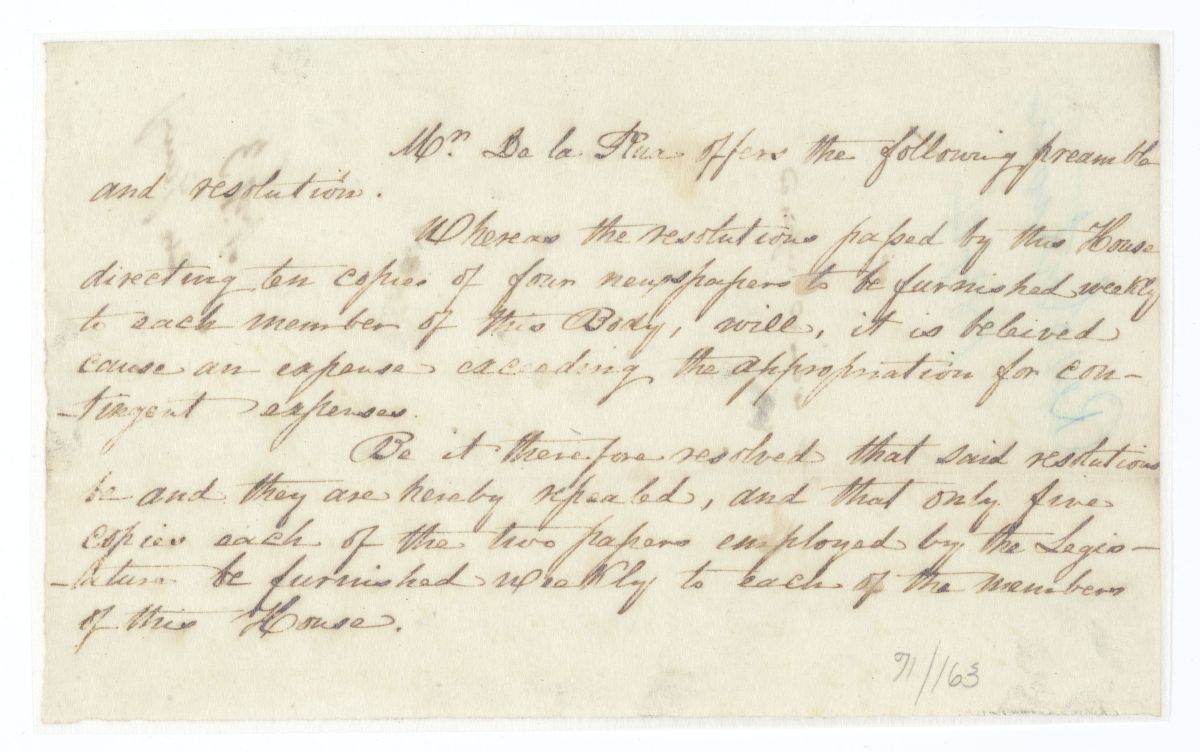 Mr. De la Rua offers the following preamble
and resolution.
Whereas the resolutions passed by this House
directing ten copies of four newspapers to be furnished weekly
to each member of this Body, will, it is beleived
cause an expense exceeding the appropriation for con-
-tingent expenses.
Be it therefore resolved that said resolutions
be and they are hereby repealed, and that only five
copies each of the two papers employed by the Legis-
-lature be furnished weekly to each of the members
of this House.
71/163